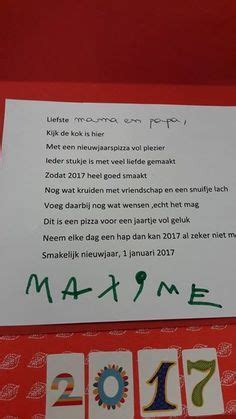 Liefste mama en papa,
Kijk de kok is hier
Met een nieuwjaarspizza vol plezier
Ieder stukje is met veel liefde gemaakt
Zodat 2017 heel goed smaakt
Nog wat kruiden met vriendschap en een snuifje lach
Voeg daarbij nog wat wensen ,echt het mag
Dit is een pizza voor een jaartje vol geluk
Neem elke dag een hap dan kan 2017 al zeker niet m
Smakelijk nieuwjaar, 1 januari 2017
MAXIME
2017